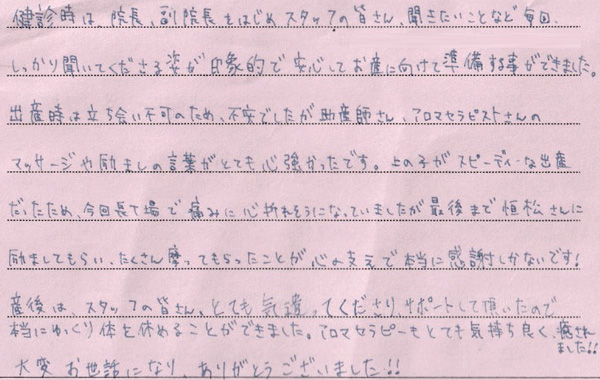 健診時は、院長、副院長をはじめスタッフの皆さん、聞きたいことなど毎回、
しっかり聞いてくださる姿が印象的で安心してお産に向けて準備する事ができました。
出産時は立ち会い不可のため、不安でしたが助産師さん、アロマセラピストさんの
マッサージや励ましの言葉がとても心強かったです。上の子がスピーディーな出産
だったため、今回長丁場で痛みに心折れそうになっていましたが最後まで恒松さんに
励ましてもらい、たくさん摩ってもらったことが心の支えで本当に感謝しかないです!
産後は、スタッフの皆さん、とても気遣ってくださり、サポートして頂いたので
本当にゆっくり体を休めることができました。アロマセラピーもとても気持ち良く、癒され
ました!!
大変お世話になり、ありがとうございました!!